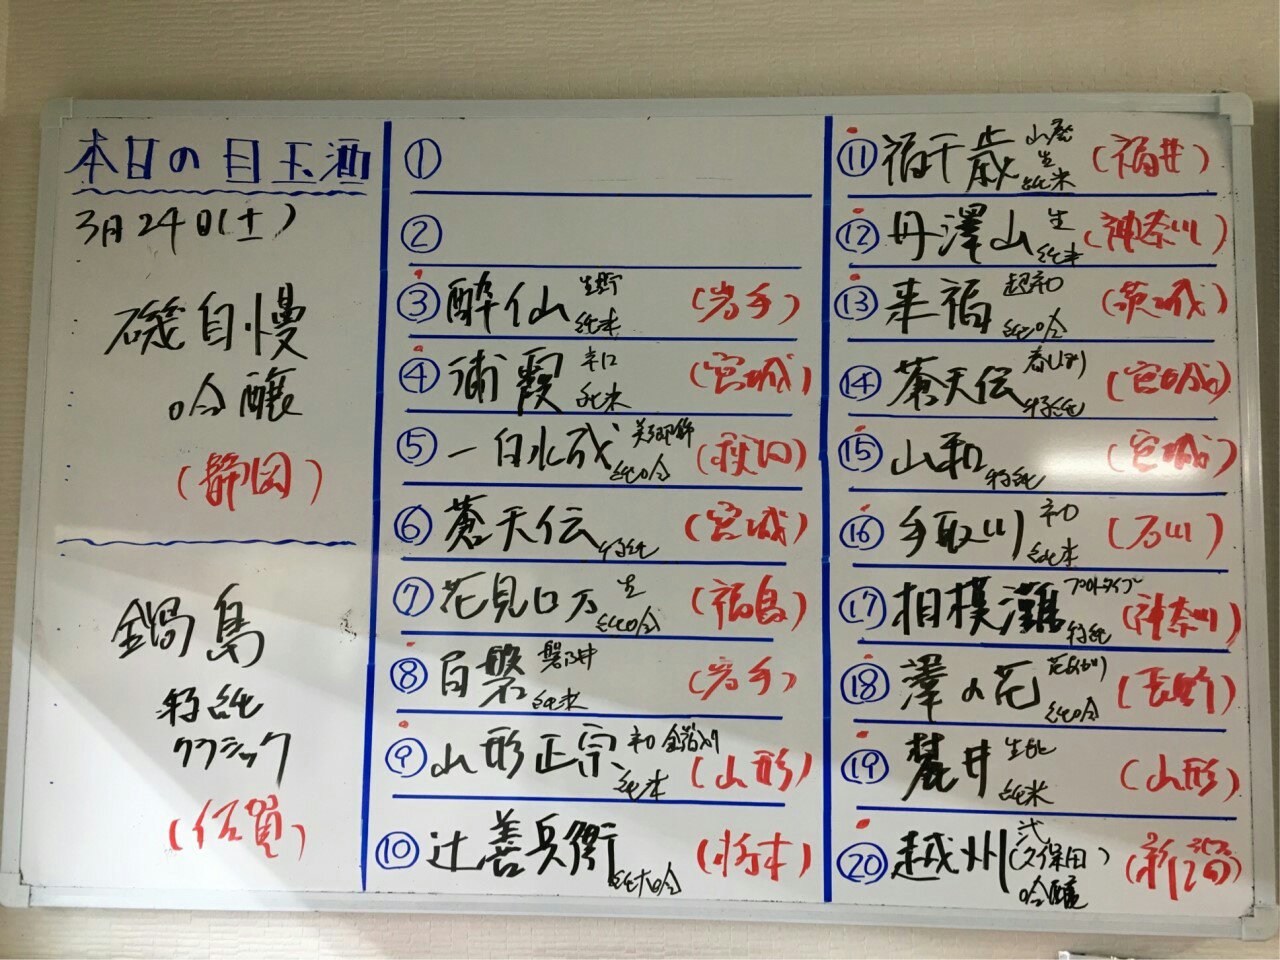 本日の目玉酒
3月24日(土)
磯自慢
吟醸
(静岡)
鍋島
特純
クラシック
(佐賀)
①
②
③ 酔仙 純米 (岩手)
④ 浦霞 辛口 純米 (宮城)
⑤ 一白水成 美郷錦 純吟 (秋田)
⑥ 蒼天伝 特純 (宮城)
⑦ 花見ロマン 生 純吟 (福島)
⑧ 百磐 磐乃井 純米 (岩手)
⑨ 山形正宗 初 金箔入り 純米 (山形)
⑩ 辻善兵衛 純大吟 (栃木)
⑪ 福千歳 山廃 生 純米 (福井)
⑫ 丹澤山 生 純米 (神奈川)
⑬ 来福 超初 純吟 (茨城)
⑭ 蒼天伝 春しぼり 特純 (宮城)
⑮ 山和 特純 (宮城)
⑯ 手取川 初 純米 (石川)
⑰ 相模灘 プロトタイプ 特純 (神奈川)
⑱ 澤の花 純吟 (長野)
⑲ 麓井 生酛 純米 (山形)
⑳ 越州 弐 (久保田) 吟醸 (新潟)